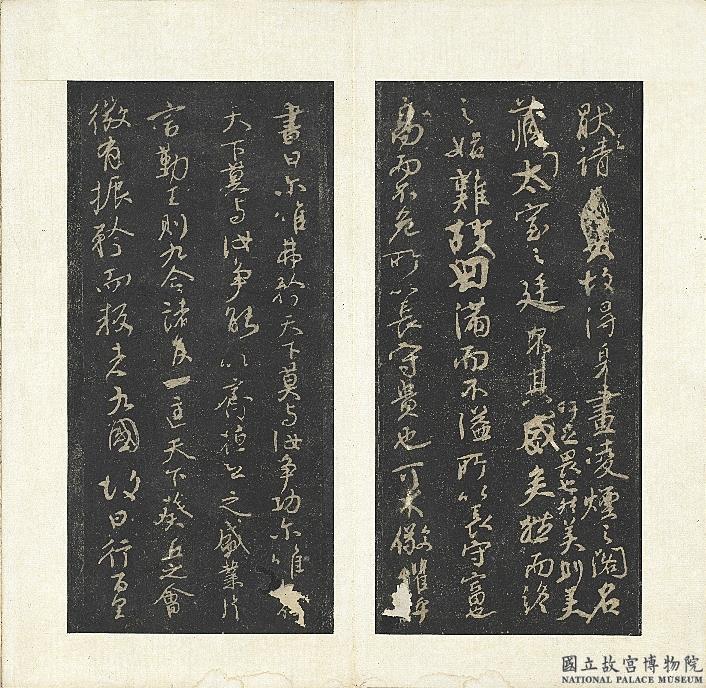 猷之請故得身畫凌煙之閣名
藏太室之廷其盛矣然而終
吁足畏也然美則美
之始難故曰滿而不溢所以長守富也
高而不危所以長守貴也可不儆懼乎
書曰爾唯弗矜天下莫與汝爭功爾唯不伐
天下莫與汝爭能以齊桓公之盛業片
言勤王則九合諸侯一匡天下葵丘之會
微有振矜而叛者九國故曰行百里
國立故宮博物院
NATIONAL PALACE MUSEUM